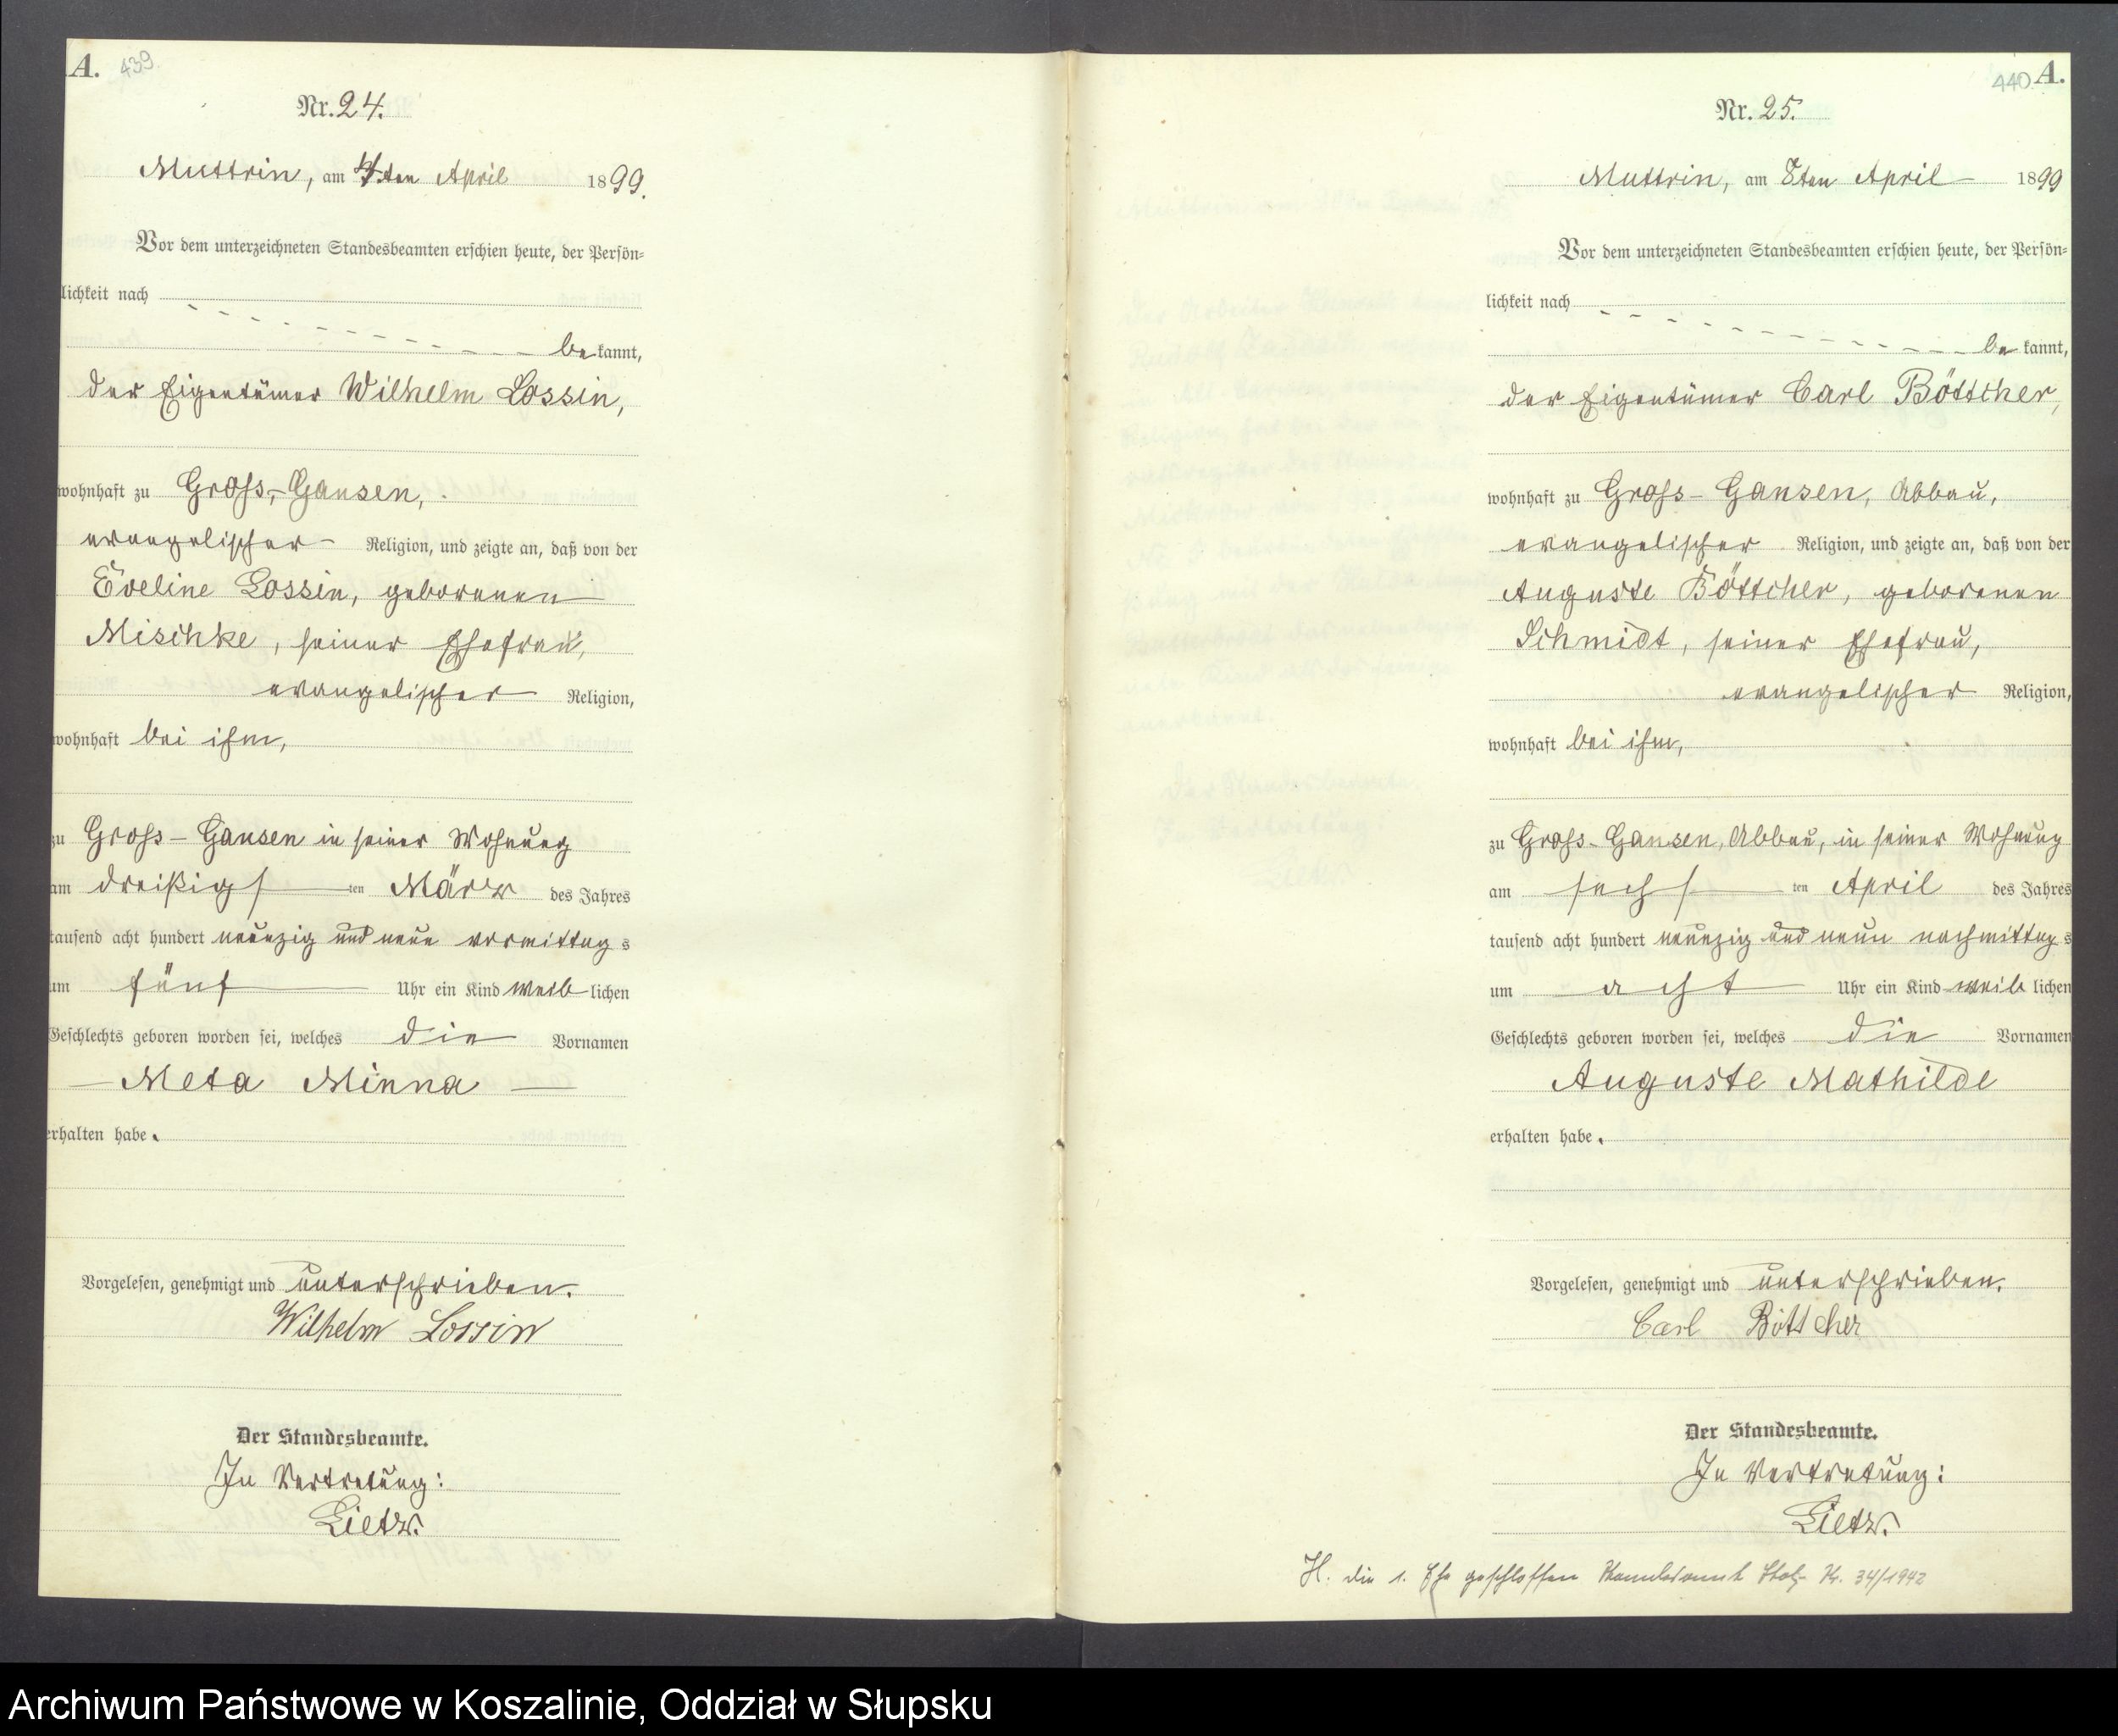 A. 439.
Nr. 24.
Muttrin, am 4ten April 1899.
Vor dem unterzeichneten Standesbeamten erschien heute, der Persön-
lichkeit nach
bekannt,
der Eigentümer Wilhelm Lossin,
wohnhaft zu Groß-Gansen,
evangelischer Religion, und zeigte an, daß von der
Eveline Lossin, geborenen
Mischke, seiner Ehefrau,
evangelischer Religion,
wohnhaft bei ihm,
zu Groß-Gansen in seiner Wohnung
am dreißigsten März des Jahres
tausend acht hundert neunzig und neun vormittags
um fünf Uhr ein Kind weiblichen
Geschlechts geboren worden sei, welches die Vornamen
Meta Minna
erhalten habe.
Vorgelesen, genehmigt und unterschrieben.
Wilhelm Lossin
Der Standesbeamte.
In Vertretung:
Lietz.
440 A.
Nr. 25.
Muttrin, am 8ten April 1899
Vor dem unterzeichneten Standesbeamten erschien heute, der Persön-
lichkeit nach
bekannt,
der Eigentümer Carl Böttcher,
wohnhaft zu Groß-Gansen, Abbau,
evangelischer Religion, und zeigte an, daß von der
Auguste Böttcher, geborenen
Schmidt, seiner Ehefrau,
evangelischer Religion,
wohnhaft bei ihm,
zu Groß-Gansen, Abbau, in seiner Wohnung
am sechsten April des Jahres
tausend acht hundert neunzig und neun nachmittags
um acht Uhr ein Kind weiblichen
Geschlechts geboren worden sei, welches die Vornamen
Auguste Mathilde
erhalten habe.
Vorgelesen, genehmigt und unterschrieben.
Carl Böttcher
Der Standesbeamte.
In Vertretung:
Lietz.
H. die 1. Ehe geschlossen Standesamt Stolp Nr. 34/1942
Archiwum Państwowe w Koszalinie, Oddział w Słupsku